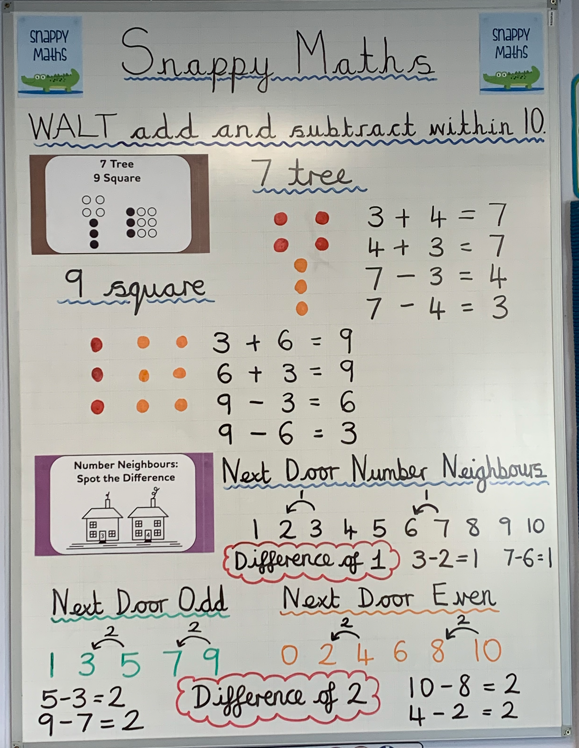 Snappy
Maths
Snappy Maths
Snappy
Maths
WALT add and subtract within 10.
7 Tree
9 Square
7 tree
3 + 4 = 7
4 + 3 = 7
7 - 3 = 4
7 - 4 = 3
9 square
3 + 6 = 9
6 + 3 = 9
9 - 3 = 6
9 - 6 = 3
Number Neighbours:
Spot the Difference
Next Door Number Neighbours
1 1
1 2 3 4 5 6 7 8 9 10
Difference of 1 3-2=1 7-6=1
Next Door Odd
2 2
1 3 5 7 9
5-3=2
9-7=2
Next Door Even
2 2
0 2 4 6 8 10
Difference of 2
10-8=2
4-2=2